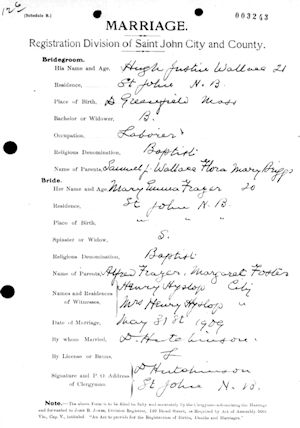 126
(Schedule B.)
003243
MARRIAGE.
Registration Division of Saint John City and County.
Bridegroom.
His Name and Age, Hugh Justin Wallace 21
Residence, St John N.B.
Place of Birth, Mass
Bachelor or Widower, B.
Occupation, Laborer
Religious Denomination, Baptist
Name of Parents, Samuel J. Wallace Flora Mary Briggs
Bride.
Her Name and Age, Mary Emma Frazer 20
Residence, St John N.B
Place of Birth, " " "
Spinster or Widow, S.
Religious Denomination, Baptist
Name of Parents, Alfred Frazer, Margaret Foster
Names and Residences of Witnesses, Henry Hyslop City
Mrs Henry Hyslop "
Date of Marriage, May 31st 1909
By whom Married, D. Hutchinson
By License or Banns, L
Signature and P. O. Address of Clergyman, D Hutchinson
St John N.B.
NOTE.—The above Form is to be filled up fully and accurately by the Clergyman solemnizing the Marriage
and forwarded to JOHN B. JONES, Division Registrar, Street, as Required by Act of Assembly
Vic., Cap. V., intituled "An Act to provide for the Registration of Births, Deaths and Marriages."